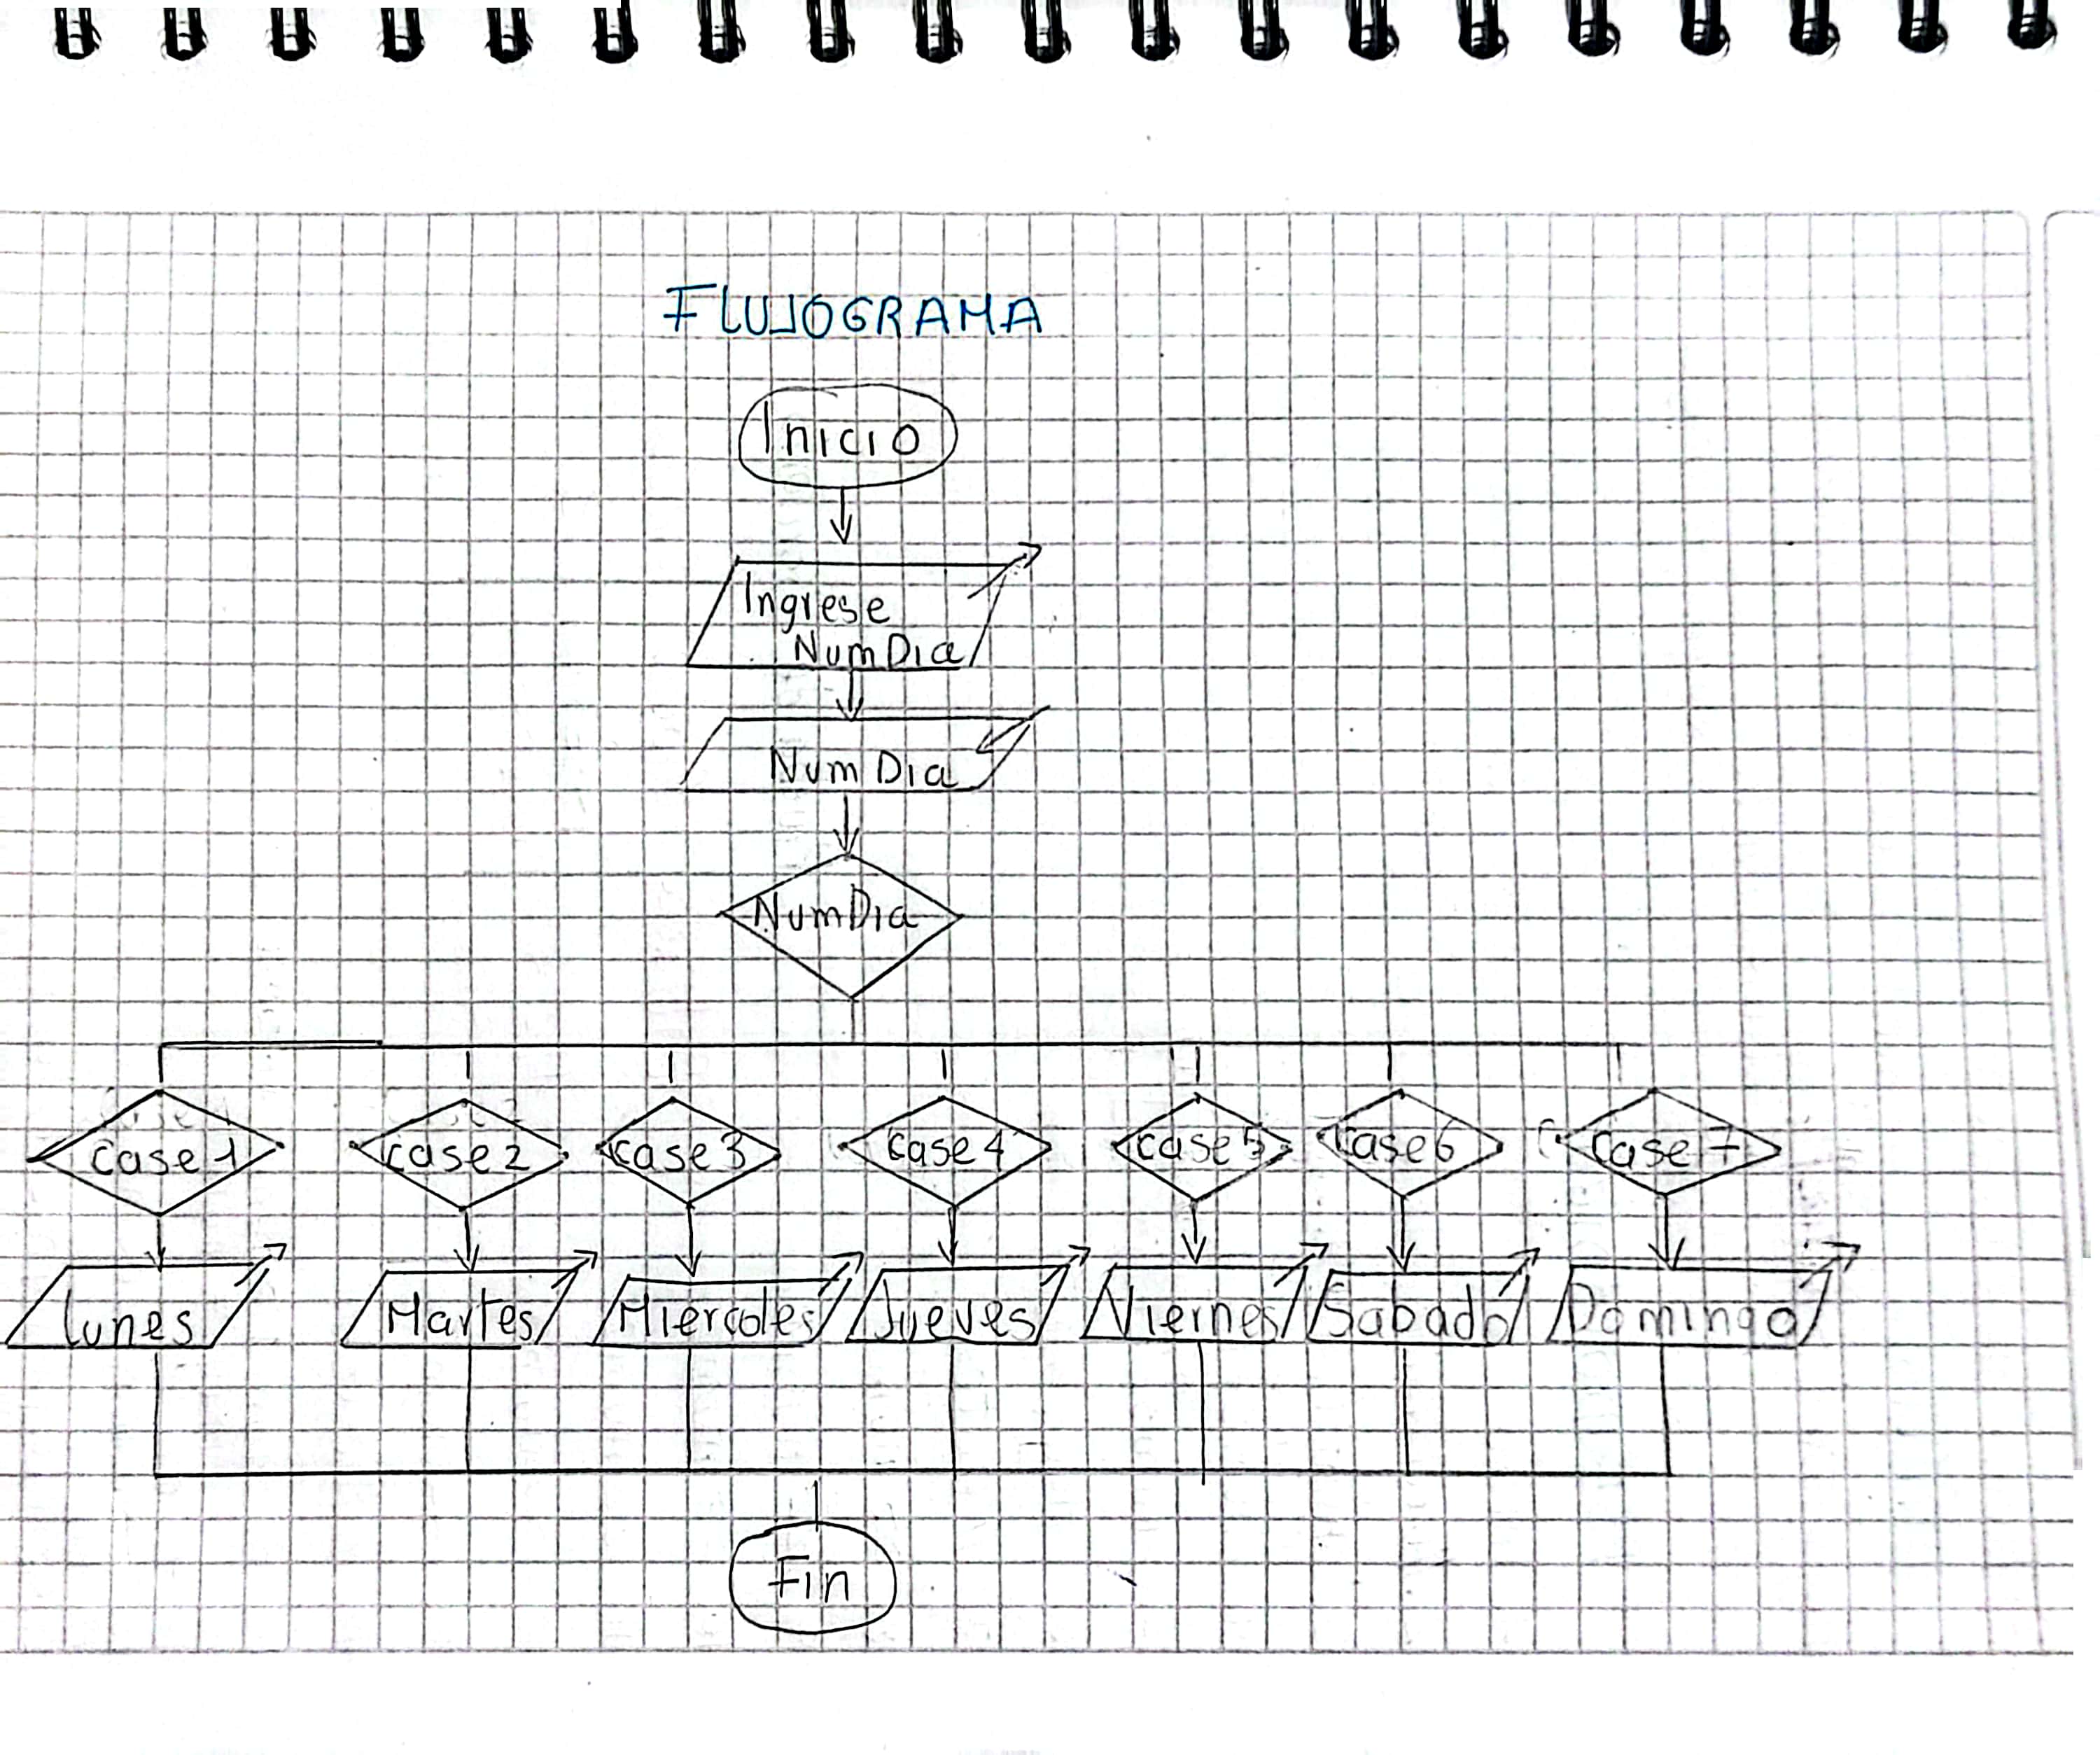 FLUJOGRAMA
Inicio
Ingrese
NumDia
NumDia
NumDia
case 1 case 2 case 3 case 4 case 5 case 6 case 7
Lunes Martes Miercoles Jueves Viernes Sabado Domingo
Fin